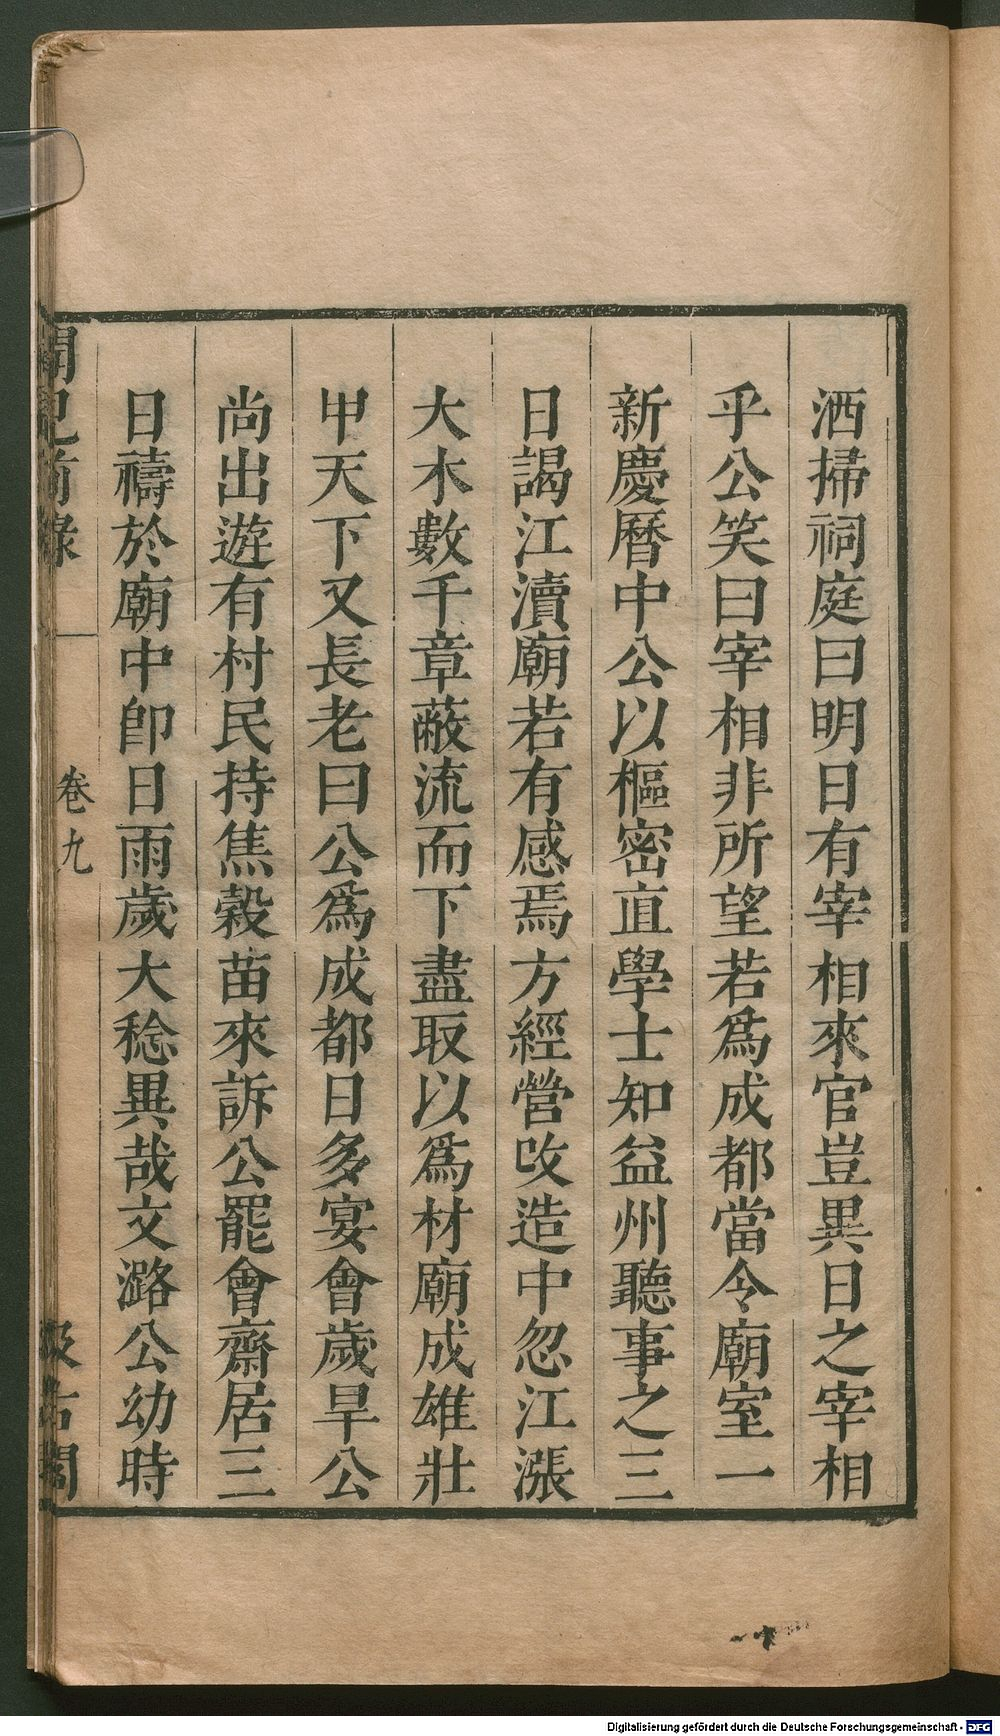 洒掃祠庭曰明日有宰相來官豈異日之宰相
乎公笑曰宰相非所望若爲成都當令廟室一
新慶曆中公以樞密直學士知益州聽事之三
日謁江瀆廟若有感焉方經營改造中忽江漲
大木數千章蔽流而下盡取以爲材廟成雄壯
甲天下又長老曰公爲成都日多宴會歲旱公
尚出遊有村民持焦榖苗來訴公罷會齋居三
日禱於廟中卽日雨歲大稔異哉文潞公幼時
聞見前錄
卷九
汲古閣
Digitalisierung gefördert durch die Deutsche Forschungsgemeinschaft - DFG